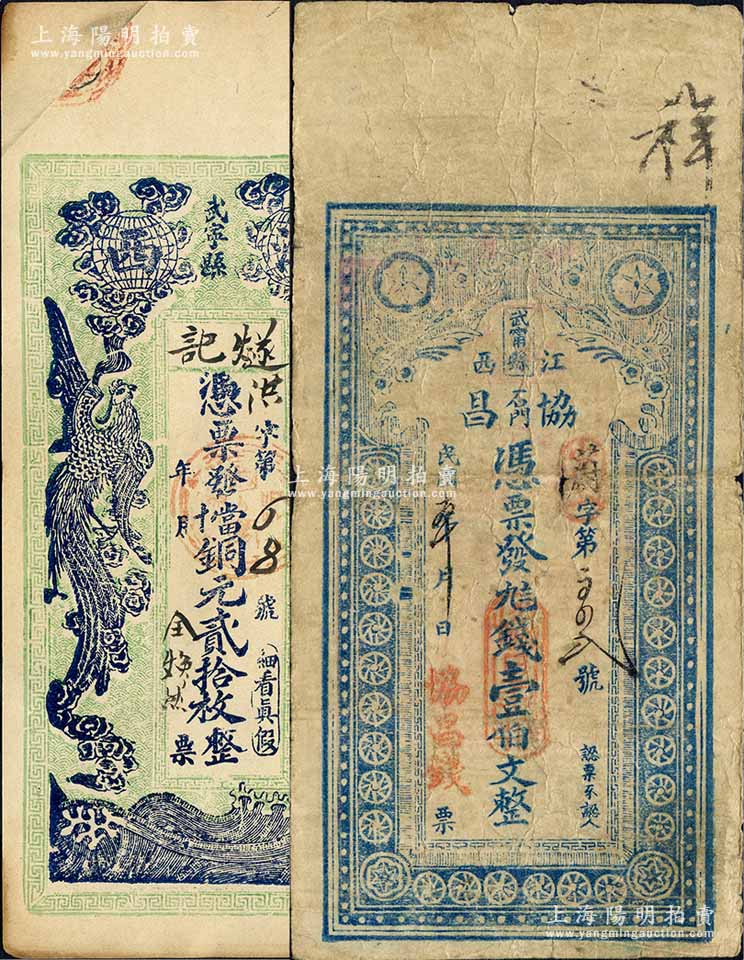 上海陽明拍賣
www.yangmingauction.com
西
武寧縣
燧記
洪字第68號
細看真假
憑票發當十銅元貳拾枚整
年 月
票
上海陽明拍賣
www.yangmingauction.com
祥
武甯縣
江西
石門
協昌
字第
號
認票不認人
憑票發九錢壹伯文整
戊年 月 日
協昌錢
票
上海陽明拍賣
www.yangmingauction.com